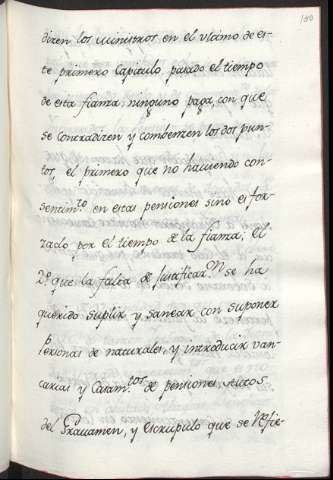 100
dizen los ministros en el vltimo de es-
te primero Capitulo pasado el tiempo
de esta fianza ninguno paga, con que
se Contradizen y combenzen los dos pun-
tos, el primero que no hauiendo con-
sentim.to en estas pensiones sino es for-
zado por el tiempo de la fianza, el
2.º que la falta de Justificaz.n se ha
querido suplir y sanear con suponer
Personas de naturales, y introducir van-
carias y Casam.tos de pensiones, Autos
del Grauamen, y escrupulo que se Refie-